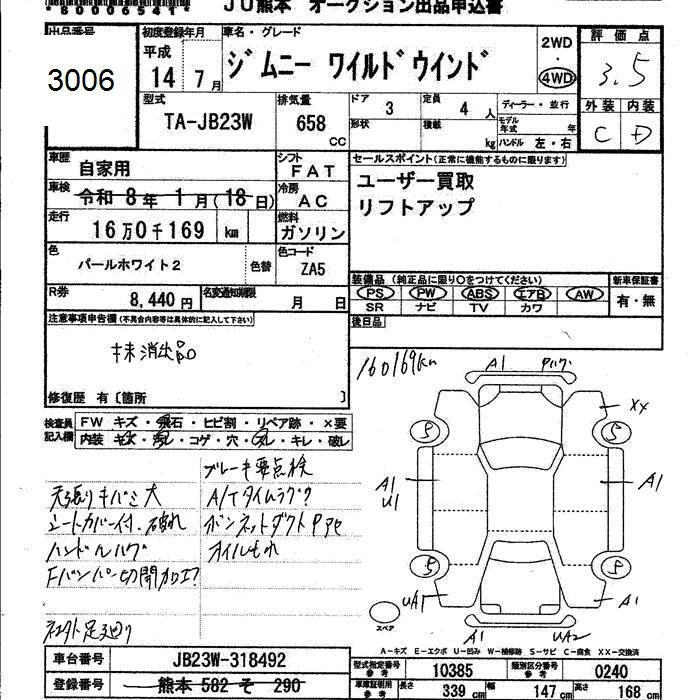 *80006541*
JU熊本 オークション出品申込書
出品番号
3006
初度登録年月
平成
14 7月
車名・グレード
ジムニー ワイルドウインド
2WD
・
4WD
評価点
3.5
外装 内装
C D
型式
TA-JB23W
排気量
658
CC
ドア
3
定員
4 人
ディーラー・並行
形状
積載
kg
モデル年式 年
ハンドル 左・右
車歴
自家用
シフト
FAT
セールスポイント(正常に機能するものに限ります)
ユーザー買取
リフトアップ
車検
令和 8年 1月(18日)
冷房
AC
走行
16万0千169 km
燃料
ガソリン
色
パールホワイト2
色替
色コード
ZA5
装備品(純正品に限り○をつけてください)
新車保証書
PS PW ABS エアB AW
SR ナビ TV カワ
有・無
R券
8,440円
名変通知期限
月 日
後日品
注意事項申告欄(不具合内容等は具体的に記入して下さい)
抹消出品
修復歴 有〔箇所 〕
検査員記入欄
FW キズ・飛石・ヒビ割・リペア跡・×要
内装 キズ・汚レ・コゲ・穴・スレ・キレ・破レ
160169km
A1
XX
A1
U1
A1
UA1
A1
A1
UA2
5
5
5
5
スペア
ブレーキ要点検
天張りキバミ大
A/Tタイムラグ?
シートカバー付、破れ
ボンネットダクト
ハンドルハゲ
オイルもれ
Fバンパー切開加工?
足廻り
A-キズ E-エクボ U-凹み W-補修跡 S-サビ C-腐食 XX-交換済
車台番号
JB23W-318492
型式指定番号 参考
10385
類別区分番号 参考
0240
登録番号
熊本 582 そ 290
車庫証明用 参考
長さ 339 cm
幅 147 cm
高さ 168 cm